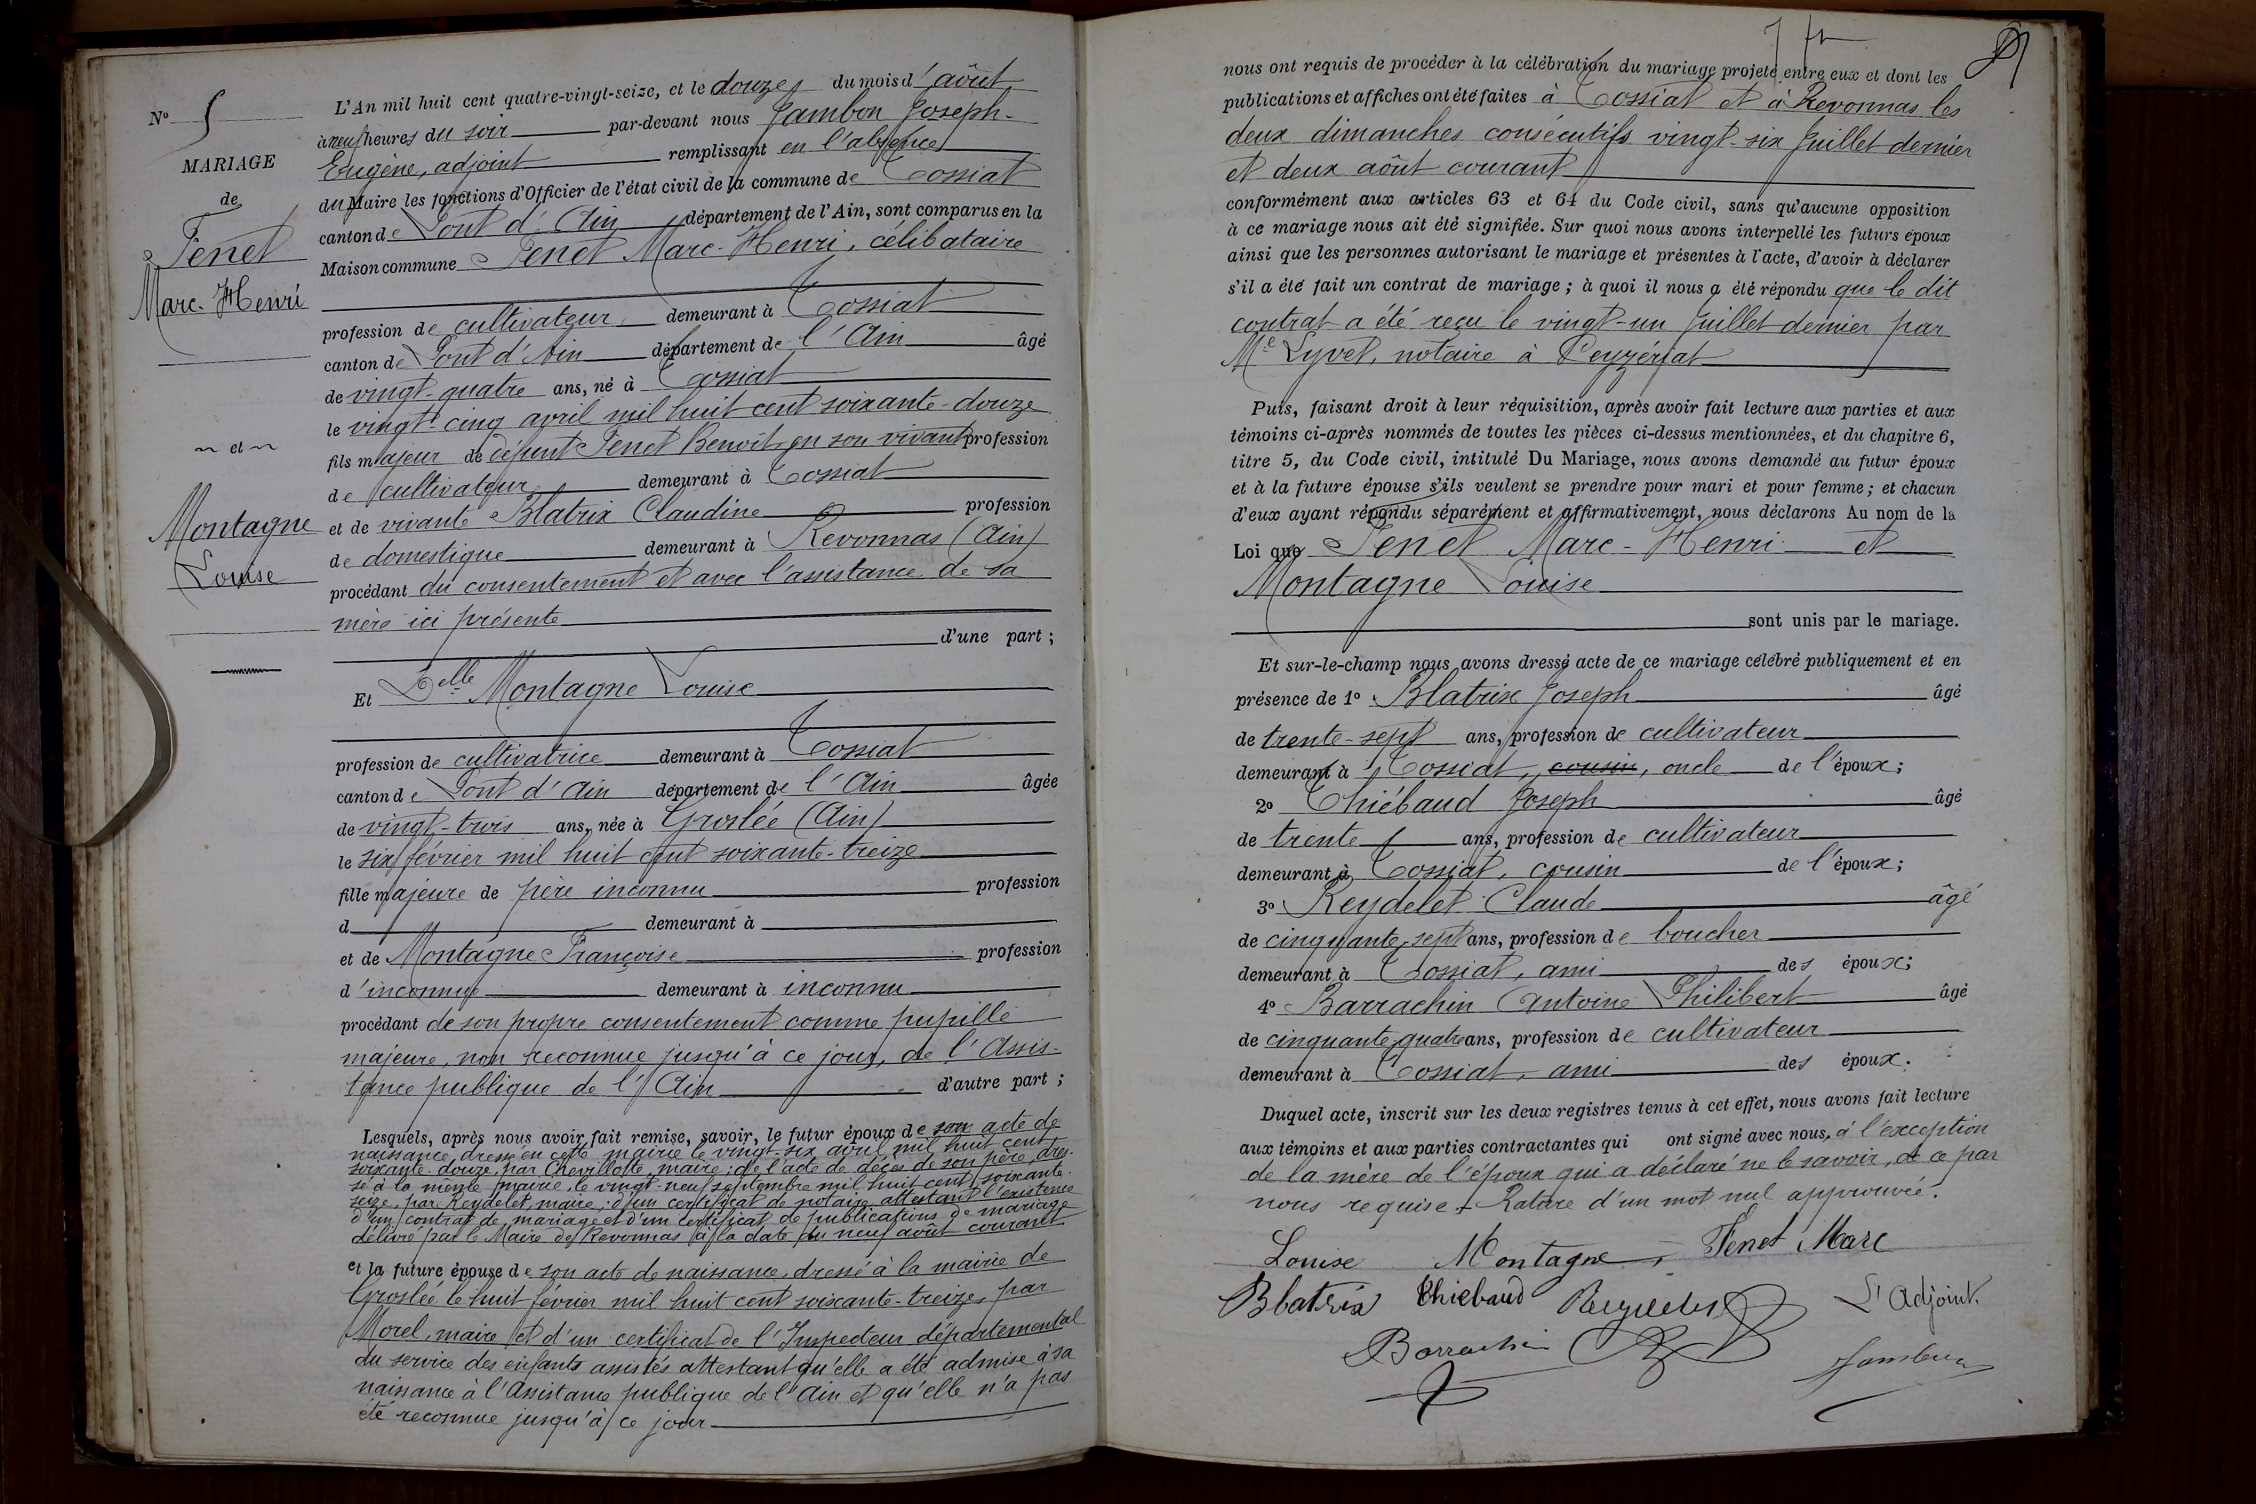 N° 5
MARIAGE
de
Tenet
Marc-Henri
et
Montagne
Louise
L'An mil huit cent quatre-vingt-seize, et le douze du mois d'août
à neuf heures du soir par-devant nous Jambon Joseph-
Eugène, adjoint remplissant en l'absence
du Maire les fonctions d'Officier de l'état civil de la commune de Tossiat
canton de Pont d'Ain département de l'Ain, sont comparus en la
Maison commune Tenet Marc-Henri, célibataire
profession de cultivateur demeurant à Tossiat
canton de Pont d'Ain département de l'Ain âgé
de vingt-quatre ans, né à Tossiat
le vingt-cinq avril mil huit cent soixante-douze
fils majeur de défunt Tenet Benoît en son vivant profession
de cultivateur demeurant à Tossiat
et de vivante Blatrix Claudine profession
de domestique demeurant à Revonnas (Ain)
procédant du consentement et avec l'assistance de sa
mère ici présente
d'une part ;
Et Delle Montagne Louise
profession de cultivatrice demeurant à Tossiat
canton de Pont d'Ain département de l'Ain âgée
de vingt-trois ans, née à Groslée (Ain)
le six février mil huit cent soixante-treize
fille majeure de père inconnu profession
d demeurant à
et de Montagne Françoise profession
d'inconnue demeurant à inconnu
procédant de son propre consentement comme pupille
majeure, non reconnue jusqu'à ce jour, de l'Assis-
tance publique de l'Ain d'autre part ;
Lesquels, après nous avoir fait remise, savoir, le futur époux de son acte de
naissance, dressé en cette mairie le vingt-six avril mil huit cent
soixante-douze, par Chevillotte, maire ; de l'acte de décès de son père, dres-
sé à la même mairie, le vingt-neuf septembre mil huit cent soixante-
seize, par Reydelet, maire ; d'un certificat de notaire attestant l'existence
d'un contrat de mariage et d'un certificat de publications de mariage
délivré par le Maire de Revonnas à la date du neuf août courant
et la future épouse de son acte de naissance, dressé à la mairie de
Groslée le huit février mil huit cent soixante-treize, par
Morel, maire et d'un certificat de l'Inspecteur départemental
du service des enfants assistés attestant qu'elle a été admise à sa
naissance à l'Assistance publique de l'Ain et qu'elle n'a pas
été reconnue jusqu'à ce jour
nous ont requis de procéder à la célébration du mariage projeté entre eux et dont les
publications et affiches ont été faites à Tossiat et à Revonnas les
deux dimanches consécutifs vingt-six juillet dernier
et deux août courant
conformément aux articles 63 et 64 du Code civil, sans qu'aucune opposition
à ce mariage nous ait été signifiée. Sur quoi nous avons interpellé les futurs époux
ainsi que les personnes autorisant le mariage et présentes à l'acte, d'avoir à déclarer
s'il a été fait un contrat de mariage ; à quoi il nous a été répondu que le dit
contrat a été reçu le vingt-un juillet dernier par
Me Lyvet, notaire à Ceyzériat
Puis, faisant droit à leur réquisition, après avoir fait lecture aux parties et aux
témoins ci-après nommés de toutes les pièces ci-dessus mentionnées, et du chapitre 6,
titre 5, du Code civil, intitulé Du Mariage, nous avons demandé au futur époux
et à la future épouse s'ils veulent se prendre pour mari et pour femme ; et chacun
d'eux ayant répondu séparément et affirmativement, nous déclarons Au nom de la
Loi que Tenet Marc-Henri et
Montagne Louise
sont unis par le mariage.
Et sur-le-champ nous avons dressé acte de ce mariage célébré publiquement et en
présence de 1° Blatrix Joseph âgé
de trente-sept ans, profession de cultivateur
demeurant à Tossiat, cousin, oncle de l'époux ;
2° Thiébaud Joseph âgé
de trente ans, profession de cultivateur
demeurant à Tossiat, cousin de l'époux ;
3° Reydelet Claude âgé
de cinquante-sept ans, profession de boucher
demeurant à Tossiat, ami des époux ;
4° Barrachin Antoine Philibert âgé
de cinquante-quatre ans, profession de cultivateur
demeurant à Tossiat, ami des époux.
Duquel acte, inscrit sur les deux registres tenus à cet effet, nous avons fait lecture
aux témoins et aux parties contractantes qui ont signé avec nous, à l'exception
de la mère de l'époux qui a déclaré ne le savoir, de ce par
nous requise. Rature d'un mot nul approuvée.
Louise Montagne, Tenet Marc
Blatrix Thiebaud Reydelet L'Adjoint.
Barrachin Jambon